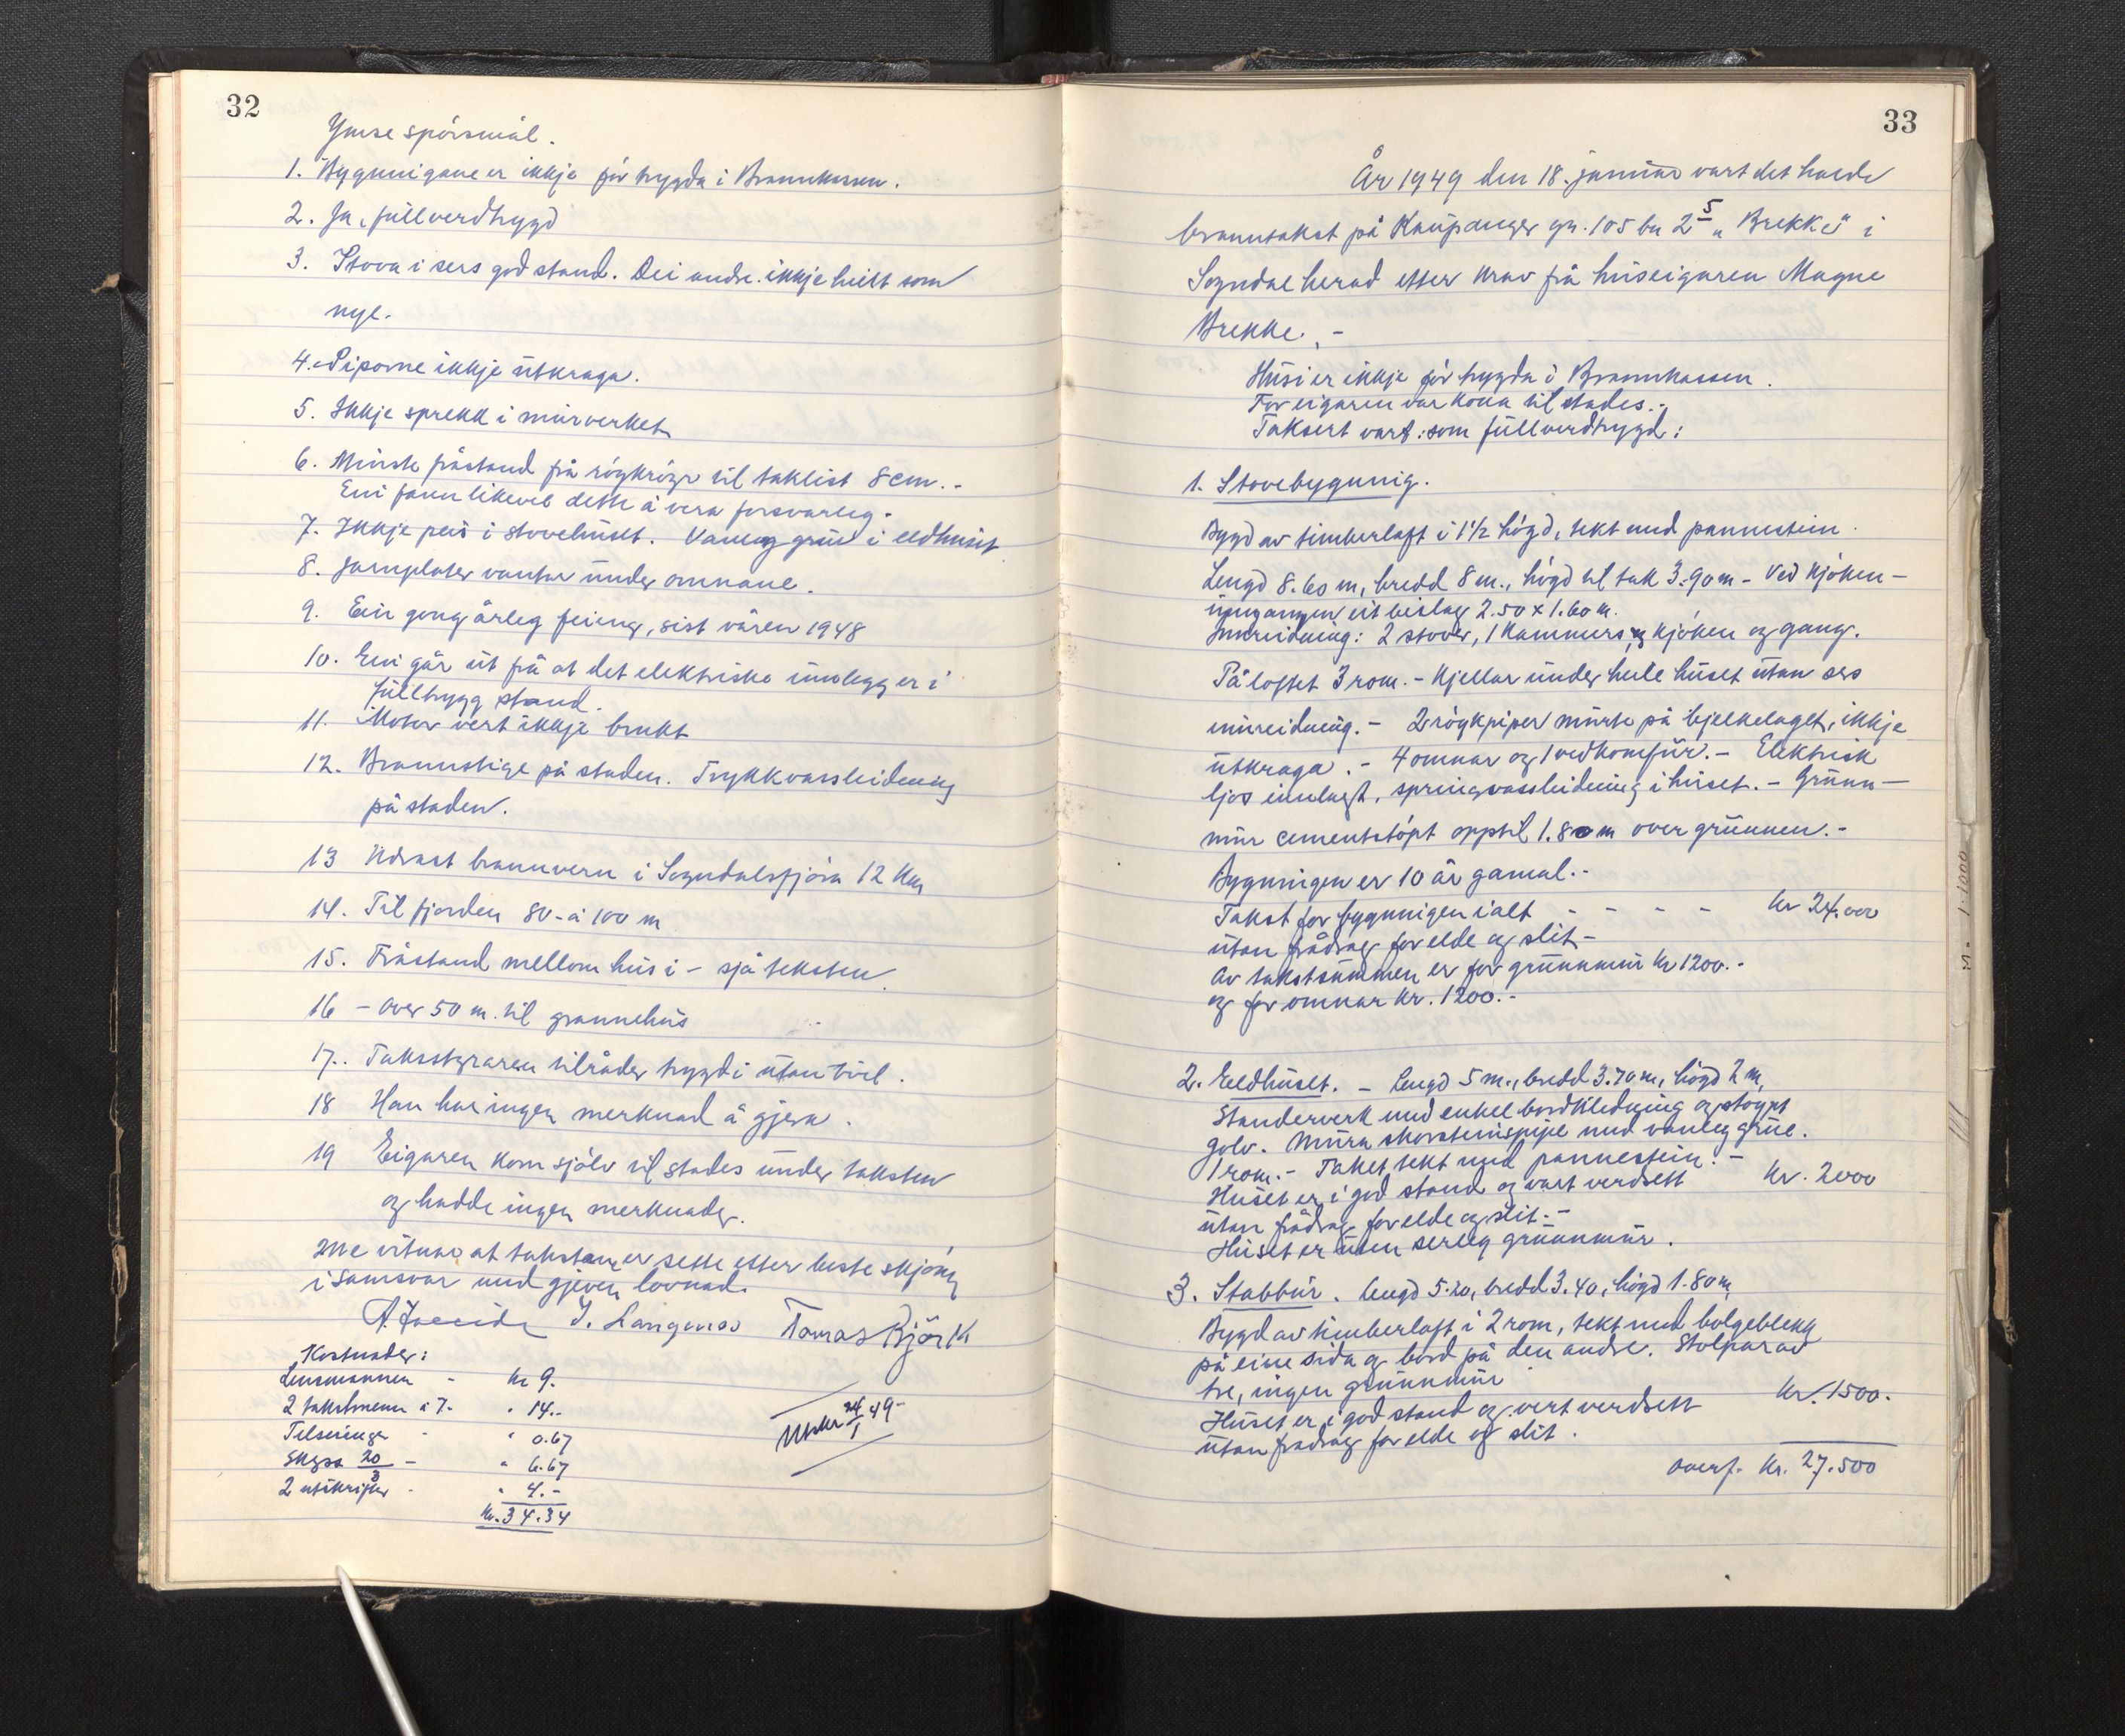 32
Ymse spörsmål.
1. Bygningane er ikkje för trygda i Brannkassen.
2. Ja, fullverdtrygd
3. Stova i sers god stand. Dei andre ikkje heilt som
nye.
4. Piporne ikkje utkraga.
5. Ikkje sprekk i murverket
6. Minste fråstand frå röykröyr til taklist 8 cm.-
Ein fann likevel dette å vera forsvarleg.
7. Ikkje peis i stovehuset. Vanleg grue i eldhuset
8. Jarnplater vantar under omnane.
9. Ein gong årleg feiing, sist våren 1948
10. Ein går ut frå at det elektriske innlegg er i
fulltrygg stand.
11. Motor vert ikkje brukt
12. Brannstige på staden. Trykkvassleidning
på staden.
13 Nærast brannvern i Sogndalsfjöra 12 km
14. Til fjorden 80 - á 100 m
15. Fråstand mellom husi - sjå teksten.
16 - over 50 m. til grannehus
17.. Takststyraren tilråder trygdi utan tvil.
18 Han har ingen merknad å gjera.
19 Eigaren kom sjölv til stades under taksten
og hadde ingen merknader.
Me vitnar at taksten er sette etter beste skjön og
i samsvar med gjeven lovnad.
Tomas Björk
Kostnader:
Lensmannen - kr 9.
2 takstmenn á 7.- " 14.-
Telseringer - " 0.67
Skyss 20/3 - " 6.67
2 utskrifter - " 4.-
Kr. 34.34
Utskr 24/1 49-
33
År 1949 den 18. januar vart det halde
branntakst på Kaupanger gn. 105 bn 25 "Brekke" i
Sogndal herad etter krav frå huseigaren Magne
Brekke. -
Husi er ikkje för trygda i Brannkassen.
For eigaren var kona til stades.-
Taksert vart som fullverdtrygd:
1. Stovebygning.
Bygd av timberlaft i 1 1/2 högd, tekt med pannestein.
Lengd 8.60 m, bredd 8 m., högd til tak 3.90 m - Ved kjöken-
inngangen eit bislag 2.50 x 1.60 m.
Innreidning: 2 stover, 1 kammers, kjöken og gang.
På loftet 3 rom.- Kjellar under heile huset utan sers
innreidning.- 2 röykpiper murte på bjelkelaget, ikkje
utkraga.- 4 omnar og 1 vedkomfür.- Elektrisk
ljos innlagt, springvassleidning i huset.- Grunn-
mur cementstöpt opptil 1.80 m over grunnen.-
Bygningen er 10 år gamal.-
Takst for bygningen ialt - - - - kr 24.000
utan frådrag for elde og slit-
Av takstsummen er for grunnmur kr 1200.-
og for omnar kr. 1200.-
2. Eldhuset. - Lengd 5 m., bredd 3.70 m, högd 2 m,
Standerverk med enkel bordkledning og stöypt
golv. Mura skorsteinspipe med vanleg grue.
1 rom.- Taket tekt med pannestein.-
Huset er i god stand og vart verdsett kr. 2000
utan frådrag for elde og slit.-
Huset er uten serleg grunnmur.
3. Stabbur. Lengd 5.20, bredd 3.40, högd 1.80 m
Bygd av timberlaft i 2 rom, tekt med bolgeblekk
på eine sida og bord på den andre. Stolpar av
tre, ingen grunnmur
Huset er i god stand og vert verdsett kr. 1500.
utan frådrag for elde og slit.
overf. kr. 27.500
M. 1:1000